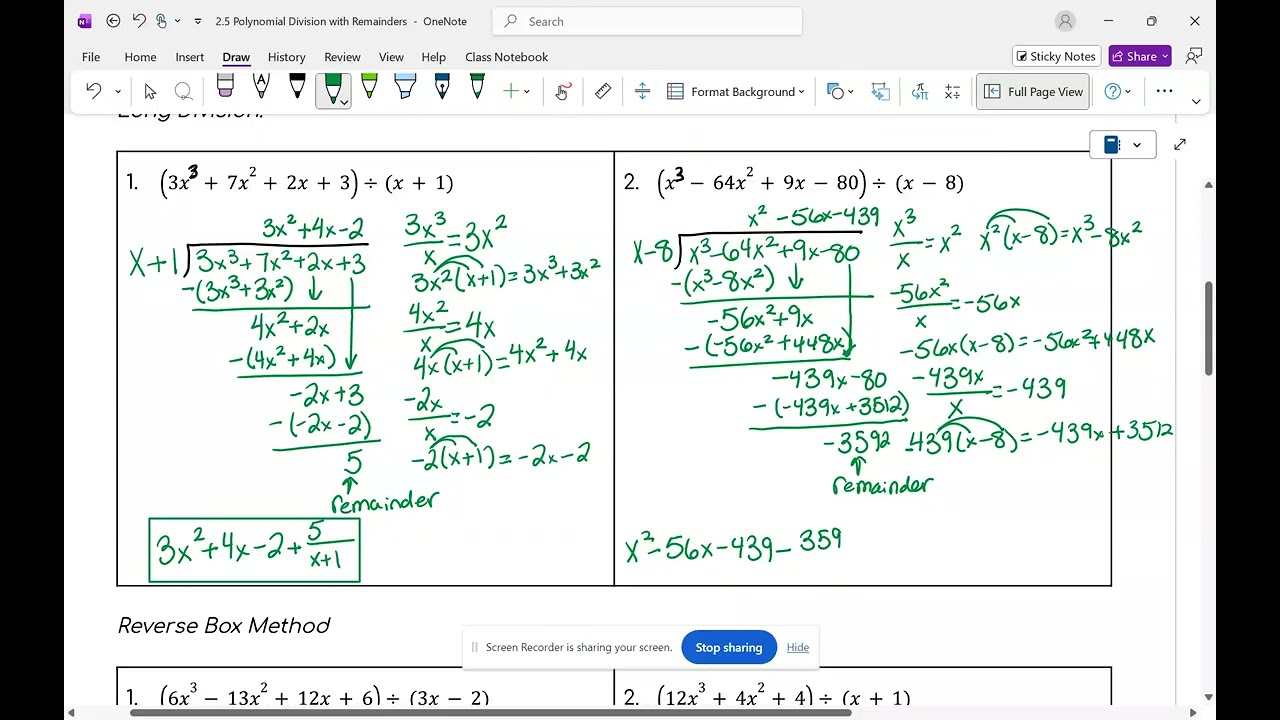 2.5 Polynomial Division with Remainders - OneNote
Search
File Home Insert Draw History Review View Help Class Notebook
Sticky Notes
Share
Format Background
Full Page View
Long Division:
1. (3x³ + 7x² + 2x + 3) ÷ (x + 1)
3x²+4x-2
x+1 3x³+7x²+2x+3
-(3x³+3x²)
4x²+2x
-(4x²+4x)
-2x+3
-(-2x-2)
5
remainder
3x³/x=3x²
3x²(x+1)=3x³+3x²
4x²/x=4x
4x(x+1)=4x²+4x
-2x/x=-2
-2(x+1)=-2x-2
3x²+4x-2+5/x+1
2. (x³ − 64x² + 9x − 80) ÷ (x − 8)
x²-56x-439
x-8 x³-64x²+9x-80
-(x³-8x²)
-56x²+9x
-(-56x²+448x)
-439x-80
-(-439x+3512)
-3592
remainder
x³/x=x²
x²(x-8)=x³-8x²
-56x²/x=-56x
-56x(x-8)=-56x²+448x
-439x/x=-439
-439(x-8)=-439x+3512
x²-56x-439-359
Reverse Box Method
Screen Recorder is sharing your screen.
Stop sharing
Hide
1. (6x³ − 13x² + 12x + 6) ÷ (3x − 2)
2. (12x³ + 4x² + 4) ÷ (x + 1)